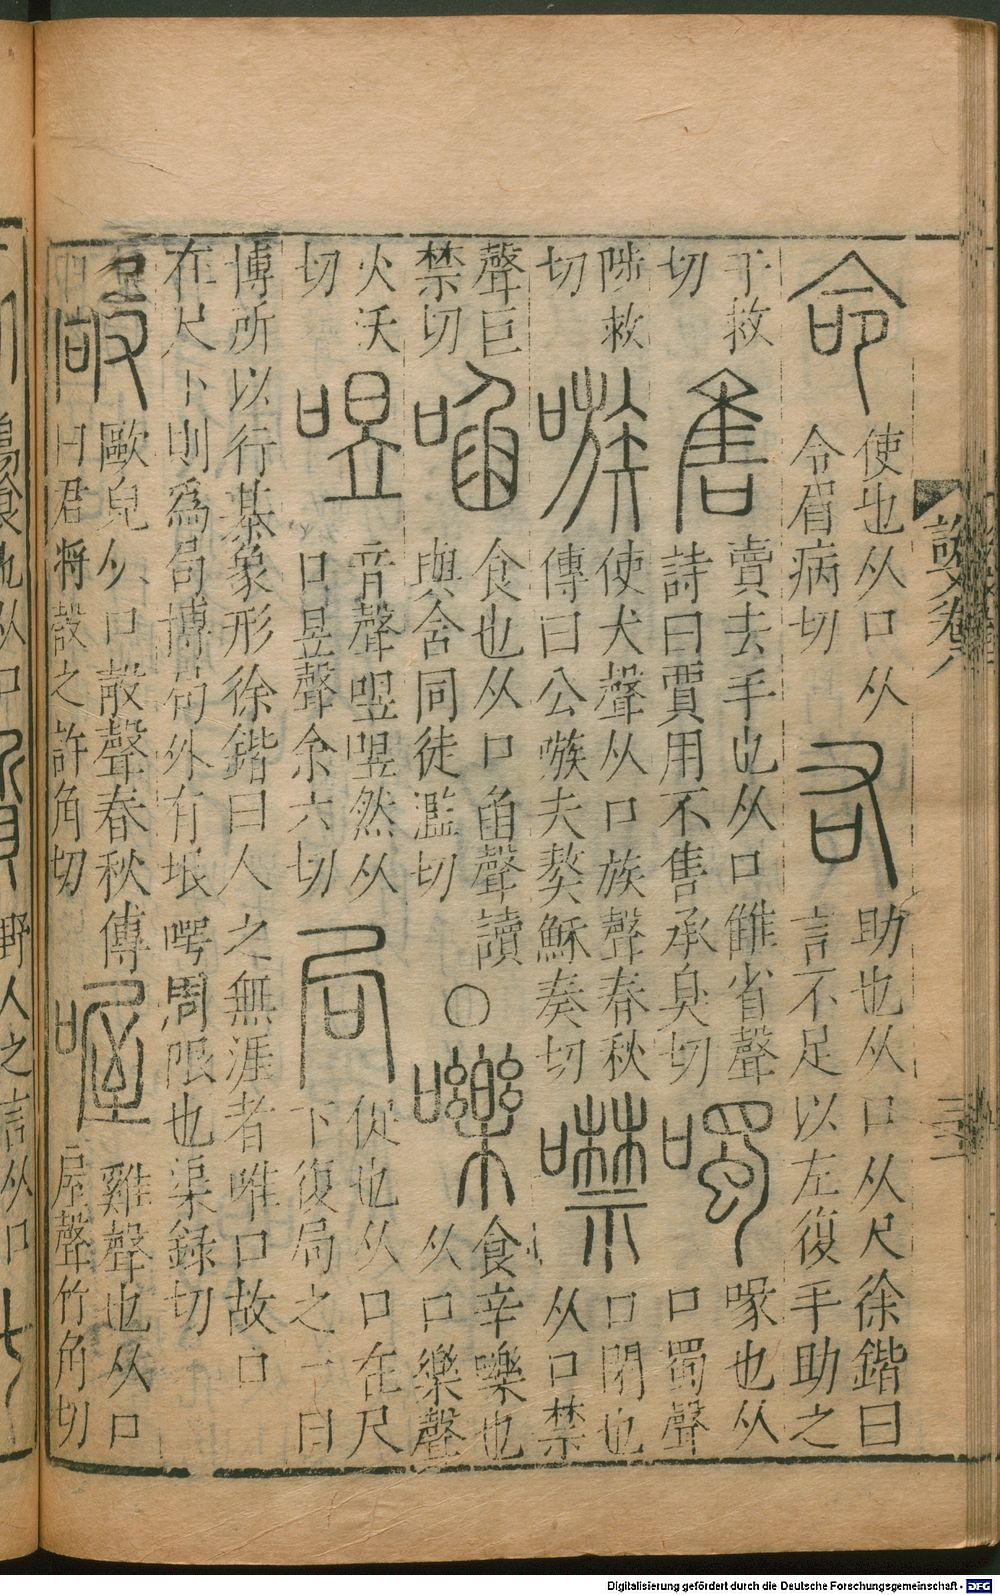 命
使也从口从
令眉病切
右
助也从口从尺徐鍇曰
言不足以左復手助之
于救
切
售
賣去手也从口雔省聲
詩曰賈用不售承臭切
噣
喙也从
口蜀聲
陟救
切
嗾
使犬聲从口族聲春秋
傳曰公嗾夫獒穌奏切
噤
口閉也
从口禁
聲巨
禁切
啗
食也从口臽聲讀
與含同徒濫切
○
嚛
食辛嚛也
从口樂聲
火沃
切
喅
音聲喅喅然从
口昱聲余六切
局
促也从口在尺
下復局之一曰
博所以行棊象形徐鍇曰人之無涯者唯口故口
在尺下則爲局博局外有垠堮周限也渠錄切
嗀
歐皃从口㱿聲春秋傳
曰君將嗀之許角切
喔
雞聲也从口
屋聲竹角切
說文卷八
三
Digitalisierung gefördert durch die Deutsche Forschungsgemeinschaft - DFG